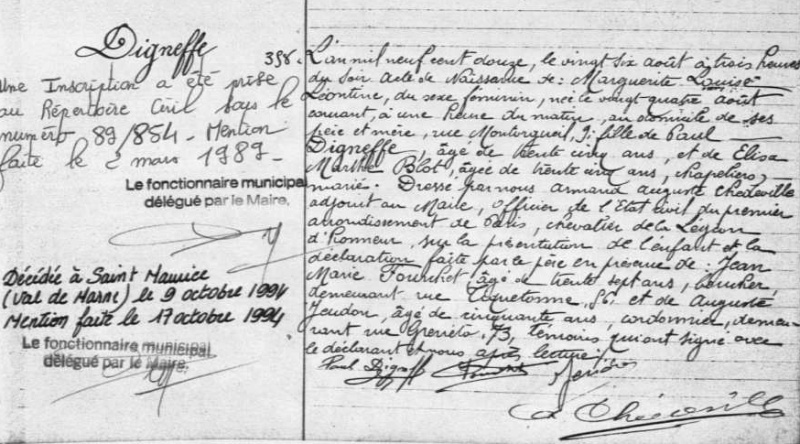 Digneffe
398.
Une Inscription a été prise
au Répertoire Civil sous le
numéro 89/854 - Mention
faite le 2 mars 1989 -
Le fonctionnaire municipal
délégué par le Maire,
Décédée à Saint Maurice
(Val de Marne) le 9 octobre 1994
Mention faite le 17 octobre 1994
Le fonctionnaire municipal
délégué par le Maire,
L'an mil neuf cent douze, le vingt six août à trois heures
du soir Acte de Naissance de: Marguerite Louise
Léontine, du sexe féminin, née le vingt quatre août
courant, à une heure du matin, au domicile de ses
père et mère, rue Montorgueil, 9; fille de Paul
Digneffe, âgé de trente cinq ans, et de Elisa
Marthe Blot, âgée de trente cinq ans, chapeliers,
mariés. Dressé par nous Armand Auguste
adjoint au Maire, Officier de l'Etat civil du premier
arrondissement de Paris, chevalier de la Légion
d'honneur, sur la présentation de l'enfant et la
déclaration faite par le père en présence de: Jean
Marie Fourchet âgé de trente sept ans, boucher,
demeurant rue Tiquetonne, et de Auguste
âgé de cinquante ans, cordonnier, demeu-
rant rue Greneta, 73, témoins qui ont signé avec
le déclarant et nous après lecture.
Paul Digneffe